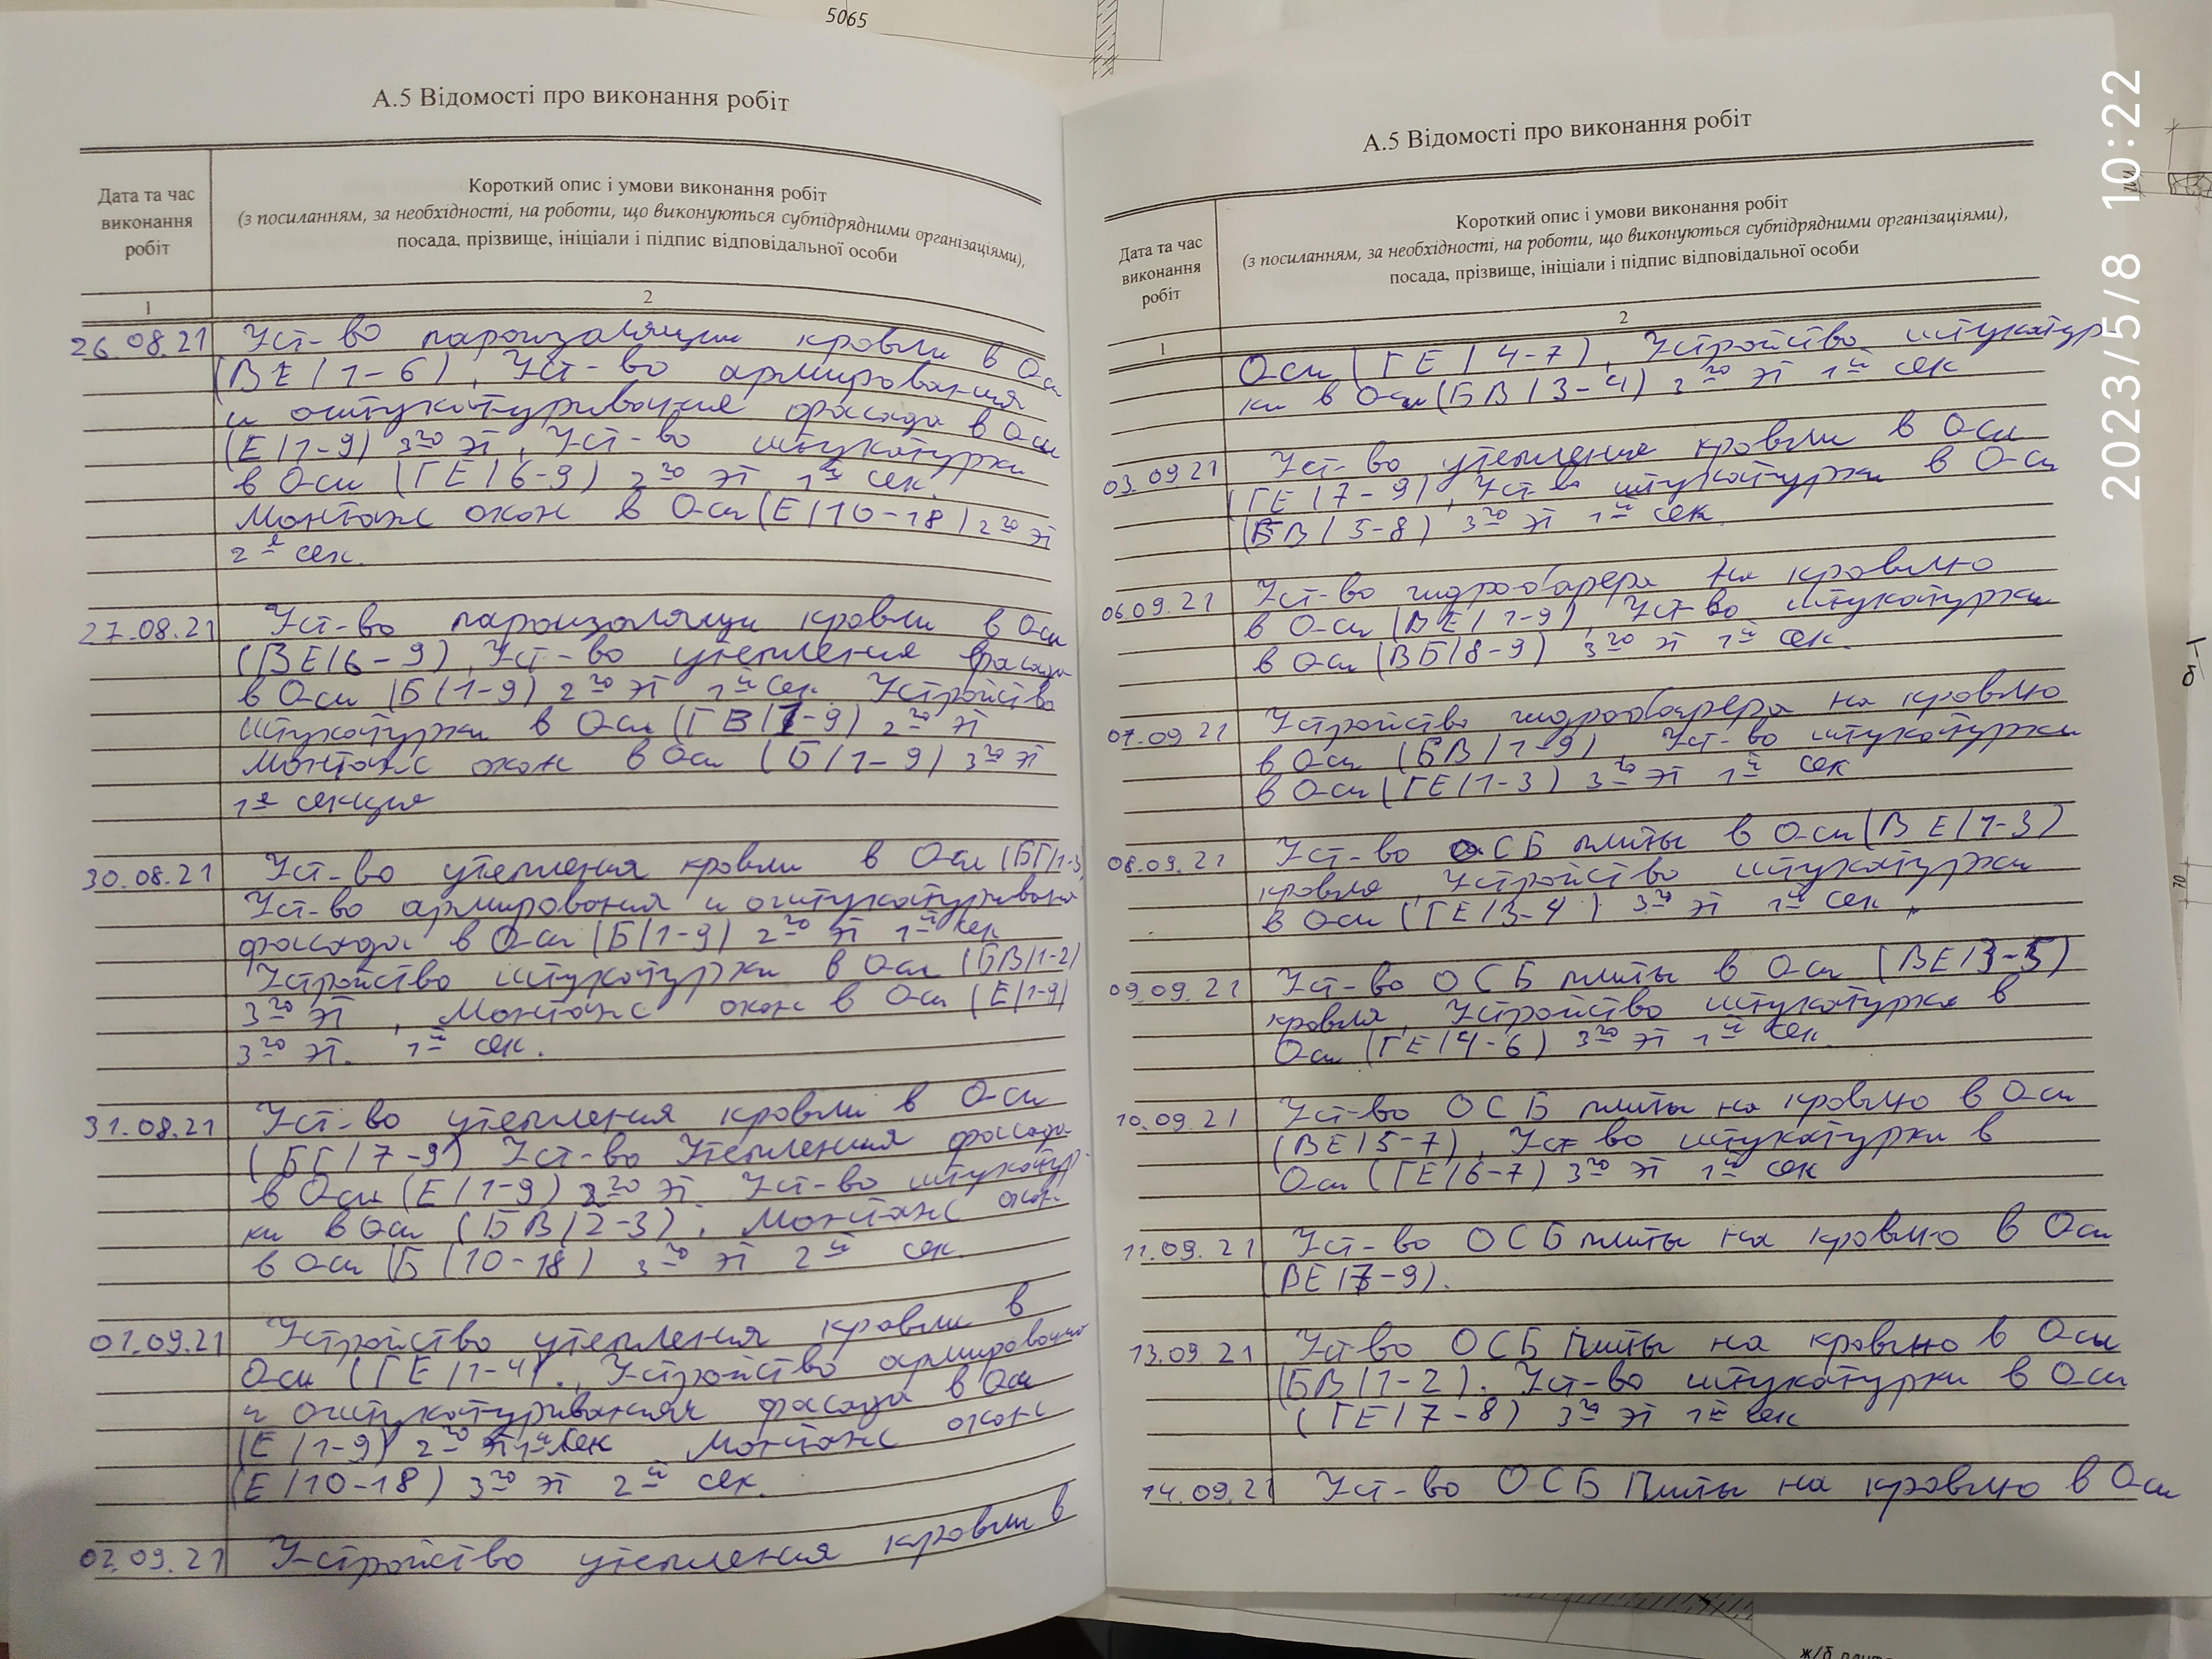 5065
А.5 Відомості про виконання робіт
Дата та час
виконання
робіт
Короткий опис і умови виконання робіт
(з посиланням, за необхідності, на роботи, що виконуються субпідрядними організаціями),
посада, прізвище, ініціали і підпис відповідальної особи
1
2
26.08.21 Уст-во пароизоляции кровли в Оси
(ВЕ/1-6), Уст-во армирования
и оштукатуривания фасада в Оси
(Е/1-9) 3го эт, Уст-во штукатурки
в Оси (ГЕ/6-9) 2го эт 1й сек.
Монтаж окон в Оси (Е/10-18) 2го эт
2й сек.
27.08.21 Уст-во пароизоляци кровли в Оси
(ВЕ/6-9), Уст-во утепления фасада
в Оси (Б/1-9) 2го эт 1й сек. Устройство
штукатурки в Оси (ГВ/1-9) 2го эт
Монтаж окон в Оси (Б/1-9) 3го эт
1я секция
30.08.21 Уст-во утепления кровли в Оси (БГ/1-3)
Уст-во армирования и оштукатуривания
фасада в Оси (Б/1-9) 2го эт 1й сек
Устройство штукатурки в Оси (БВ/1-2)
3го эт, Монтаж окон в Оси (Е/1-9)
3го эт. 1й сек.
31.08.21 Уст-во утепления кровли в Оси
(БГ/7-9) Уст-во Утепления фасада
в Оси (Е/1-9) 2го эт Уст-во штукатур-
ки в Оси (БВ/2-3), Монтаж окон
в Оси (Б/10-18) 3го эт 2й сек.
01.09.21 Устройство утепления кровли в
Оси (ГЕ/1-4)., Устройство армирования
и оштукатуривания фасада в Оси
(Е/1-9) 2го эт 1й сек Монтаж окон
(Е/10-18) 3го эт 2й сек.
02.09.21 Устройство утепления кровли в
А.5 Відомості про виконання робіт
Дата та час
виконання
робіт
Короткий опис і умови виконання робіт
(з посиланням, за необхідності, на роботи, що виконуються субпідрядними організаціями),
посада, прізвище, ініціали і підпис відповідальної особи
1
2
Оси (ГЕ/4-7), Устройство штукатур
ки в Оси (БВ/3-4) 3го эт 1й сек
03.09.21 Уст-во утепления кровли в Оси
(ГЕ/7-9), Уст-во штукатурки в Оси
(БВ/5-8) 3го эт 1й сек
06.09.21 Уст-во гидробарера на кровлю
в Оси (ВЕ/1-9), Уст-во штукатурки
в Оси (ВБ/8-9) 3го эт 1й сек.
07.09.21 Устройство гидробарера на кровлю
в Оси (БВ/1-9), Уст-во штукатурки
в Оси (ГЕ/1-3) 3го эт 1й сек
08.09.21 Уст-во ОСБ плиты в Оси (ВЕ/1-3)
кровля, Устройство штукатурки
в Оси (ГЕ/3-4) 3го эт 1й сек,
09.09.21 Уст-во ОСБ плиты в Оси (ВЕ/3-5)
кровля, Устройство штукатурка в
Оси (ГЕ/4-6) 3го эт 1й сек.
10.09.21 Уст-во ОСБ плиты на кровлю в Оси
(ВЕ/5-7), Уст-во штукатурки в
Оси (ГЕ/6-7) 3го эт 1й сек
11.09.21 Уст-во ОСБ плиты на кровлю в Оси
(ВЕ/7-9).
13.09.21 Уст-во ОСБ Плиты на кровлю в Оси
(БВ/1-2). Уст-во штукатурки в Оси
(ГЕ/7-8) 3го эт 1й сек
14.09.21 Уст-во ОСБ Плиты на кровлю в Оси
2023/5/8 10:22
70